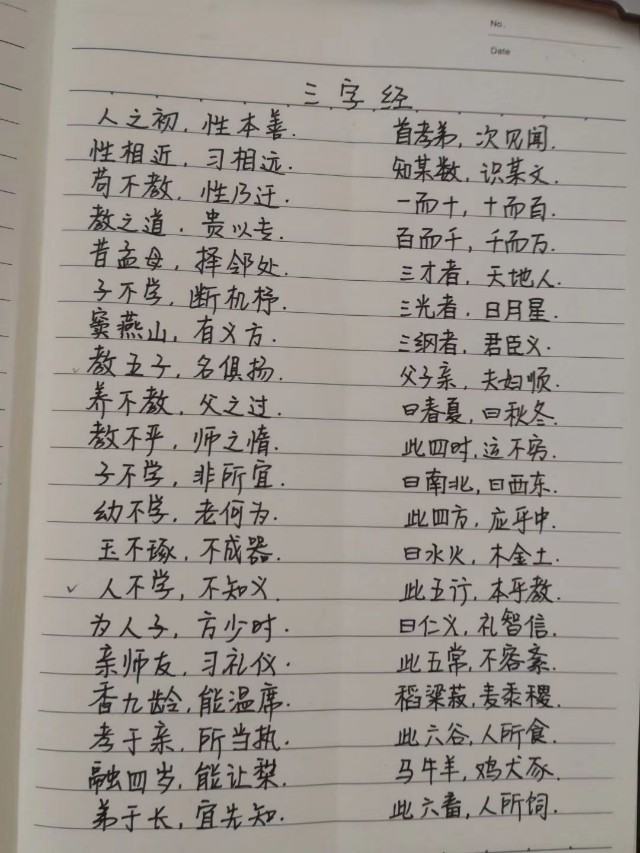 No.
Date
三字经
人之初，性本善.
性相近，习相远.
苟不教，性乃迁.
教之道，贵以专.
昔孟母，择邻处.
子不学，断机杼.
窦燕山，有义方.
教五子，名俱扬.
养不教，父之过.
教不严，师之惰.
子不学，非所宜.
幼不学，老何为.
玉不琢，不成器.
人不学，不知义.
为人子，方少时.
亲师友，习礼仪.
香九龄，能温席.
孝于亲，所当执.
融四岁，能让梨.
弟于长，宜先知.
首孝弟，次见闻.
知某数，识某文.
一而十，十而百.
百而千，千而万.
三才者，天地人.
三光者，日月星.
三纲者，君臣义.
父子亲，夫妇顺.
曰春夏，曰秋冬.
此四时，运不穷.
曰南北，曰西东.
此四方，应乎中.
曰水火，木金土.
此五行，本乎数.
曰仁义，礼智信.
此五常，不容紊.
稻粱菽，麦黍稷.
此六谷，人所食.
马牛羊，鸡犬豕.
此六畜，人所饲.